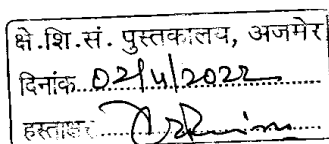 क्षे.शि.सं. पुस्तकालय, अजमेर
दिनांक 02/4/2022
हस्ताक्षर